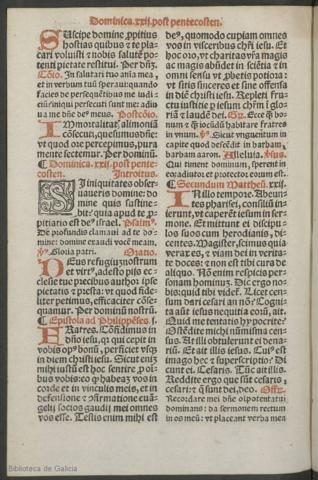 Dominica.xxij.post pentecosten.
Suscipe domine ꝓpitius
hostias quibus ⁊ te pla
cari voluisti ⁊ nobis salutē po
tenti pietate restitui. Per dn̄ʒ.
Cōio. In salutari tuo aīa mea,
et in verbum tuū speraui: quando
facies de persequētibus me iudi
ciū: iniqui persecuti sunt me: adiu
ua me dn̄e deʼ meus. Postcōio.
Immortalitatʼ alimoniā
cōsecuti, quesumus dn̄e:
vt quod ore percepimus, pura
mente sectemur. Per dominū.
¶ Dominica. xxij. post pente-
costen. Introitus.
Si iniquitates obser
uaueris domine: do
mine quis sustine
bit: quia apud te ꝓ
pitiatio est deʼ israel. Psalmʼ.
De profundis clamaui ad te do
mine: domine exaudi vocē meam,
℣. Gloria patri. Oratio.
Deus refugiuʒ nostrum
et virtʼ, adesto pijs ec-
clesie tue precibus authoꝛ ipse
pietatis: ⁊ presta: vt quod fide-
liter petimus, efficaciter cōse-
quamur. Per dominū nostrū.
¶ Epistola ad Philippēses. j.
Fratres. Cōfidimus in
dn̄o iesu, qꝛ qui cepit in
vobis opʼ bonū, perficiet vsqʒ
in diem christi iesu. Sicut est
mihi iustū est hoc sentire ꝓ oī
bus vobis: eo ꝙ habeā vos in
corde et in vinculis meis, et in
defensione ⁊ ꝯfirmatione euā-
gelij socios gaudij mei omnes
vos esse. Testis enim mihi est
deʼ, quomodo cupiam omnes
vos in visceribus chr̄i iesu. Et
hoc oro, vt charitas vr̄a magis
ac magis abūdet in sciētia et in
omni sensu vt ꝓbetis potiora:
vt sitis sinceres et sine offensa
in diē christi iesu. Repleti fru-
ctu iustitie ꝑ iesum chr̄m ī glo-
riā ⁊ laudē dei. Gr̄. Ecce ꝙ̄ bo
num ⁊ ꝙ̄ iocūdū habitare fratres
in vnum, ℣. Sicut vnguentum in
capite quod descēdit in barbam,
barbam aaron. Alleluia. ℣sus.
Qui timent dominum, sperent in
eo: adiutor et protector eorum est.
¶ Secundum Mattheū. xxij.
In illo tempore. Abeun-
tes pharisei, consiliū in-
ierunt, vt caperēt iesum in ser-
mone. Et mittunt ei discipu-
los suos cum herodianis, di-
centes. Magister, scimus quia
verax es, ⁊ viam dei in verita-
te doces: ⁊ non est tibi cura de
aliquo. Nō enim respicis per-
sonam hominum. Dic ergo no
bis: quid tibi videtʼ. Licet cen-
sum dari cesari an nō? Cogni-
ta aūt iesus nequitia eorū, ait.
Quid me tentatis hypocrite?
Ostēdite mihi numisma cen-
sus. At illi obtulerunt ei dena-
riū. Et ait illis iesus. Cuiʼ est
imago hec ⁊ superscriptio? Di
cunt ei. Cesaris. Tūc ait illis.
Reddite ergo que sūt cesaris,
cesari: ⁊ q̄ sunt dei, deo. Offꝛ.
Recordare mei dn̄e oīpotentatui
dominans: da sermonem rectum
in os meū: vt placeant verba mea
Biblioteca de Galicia